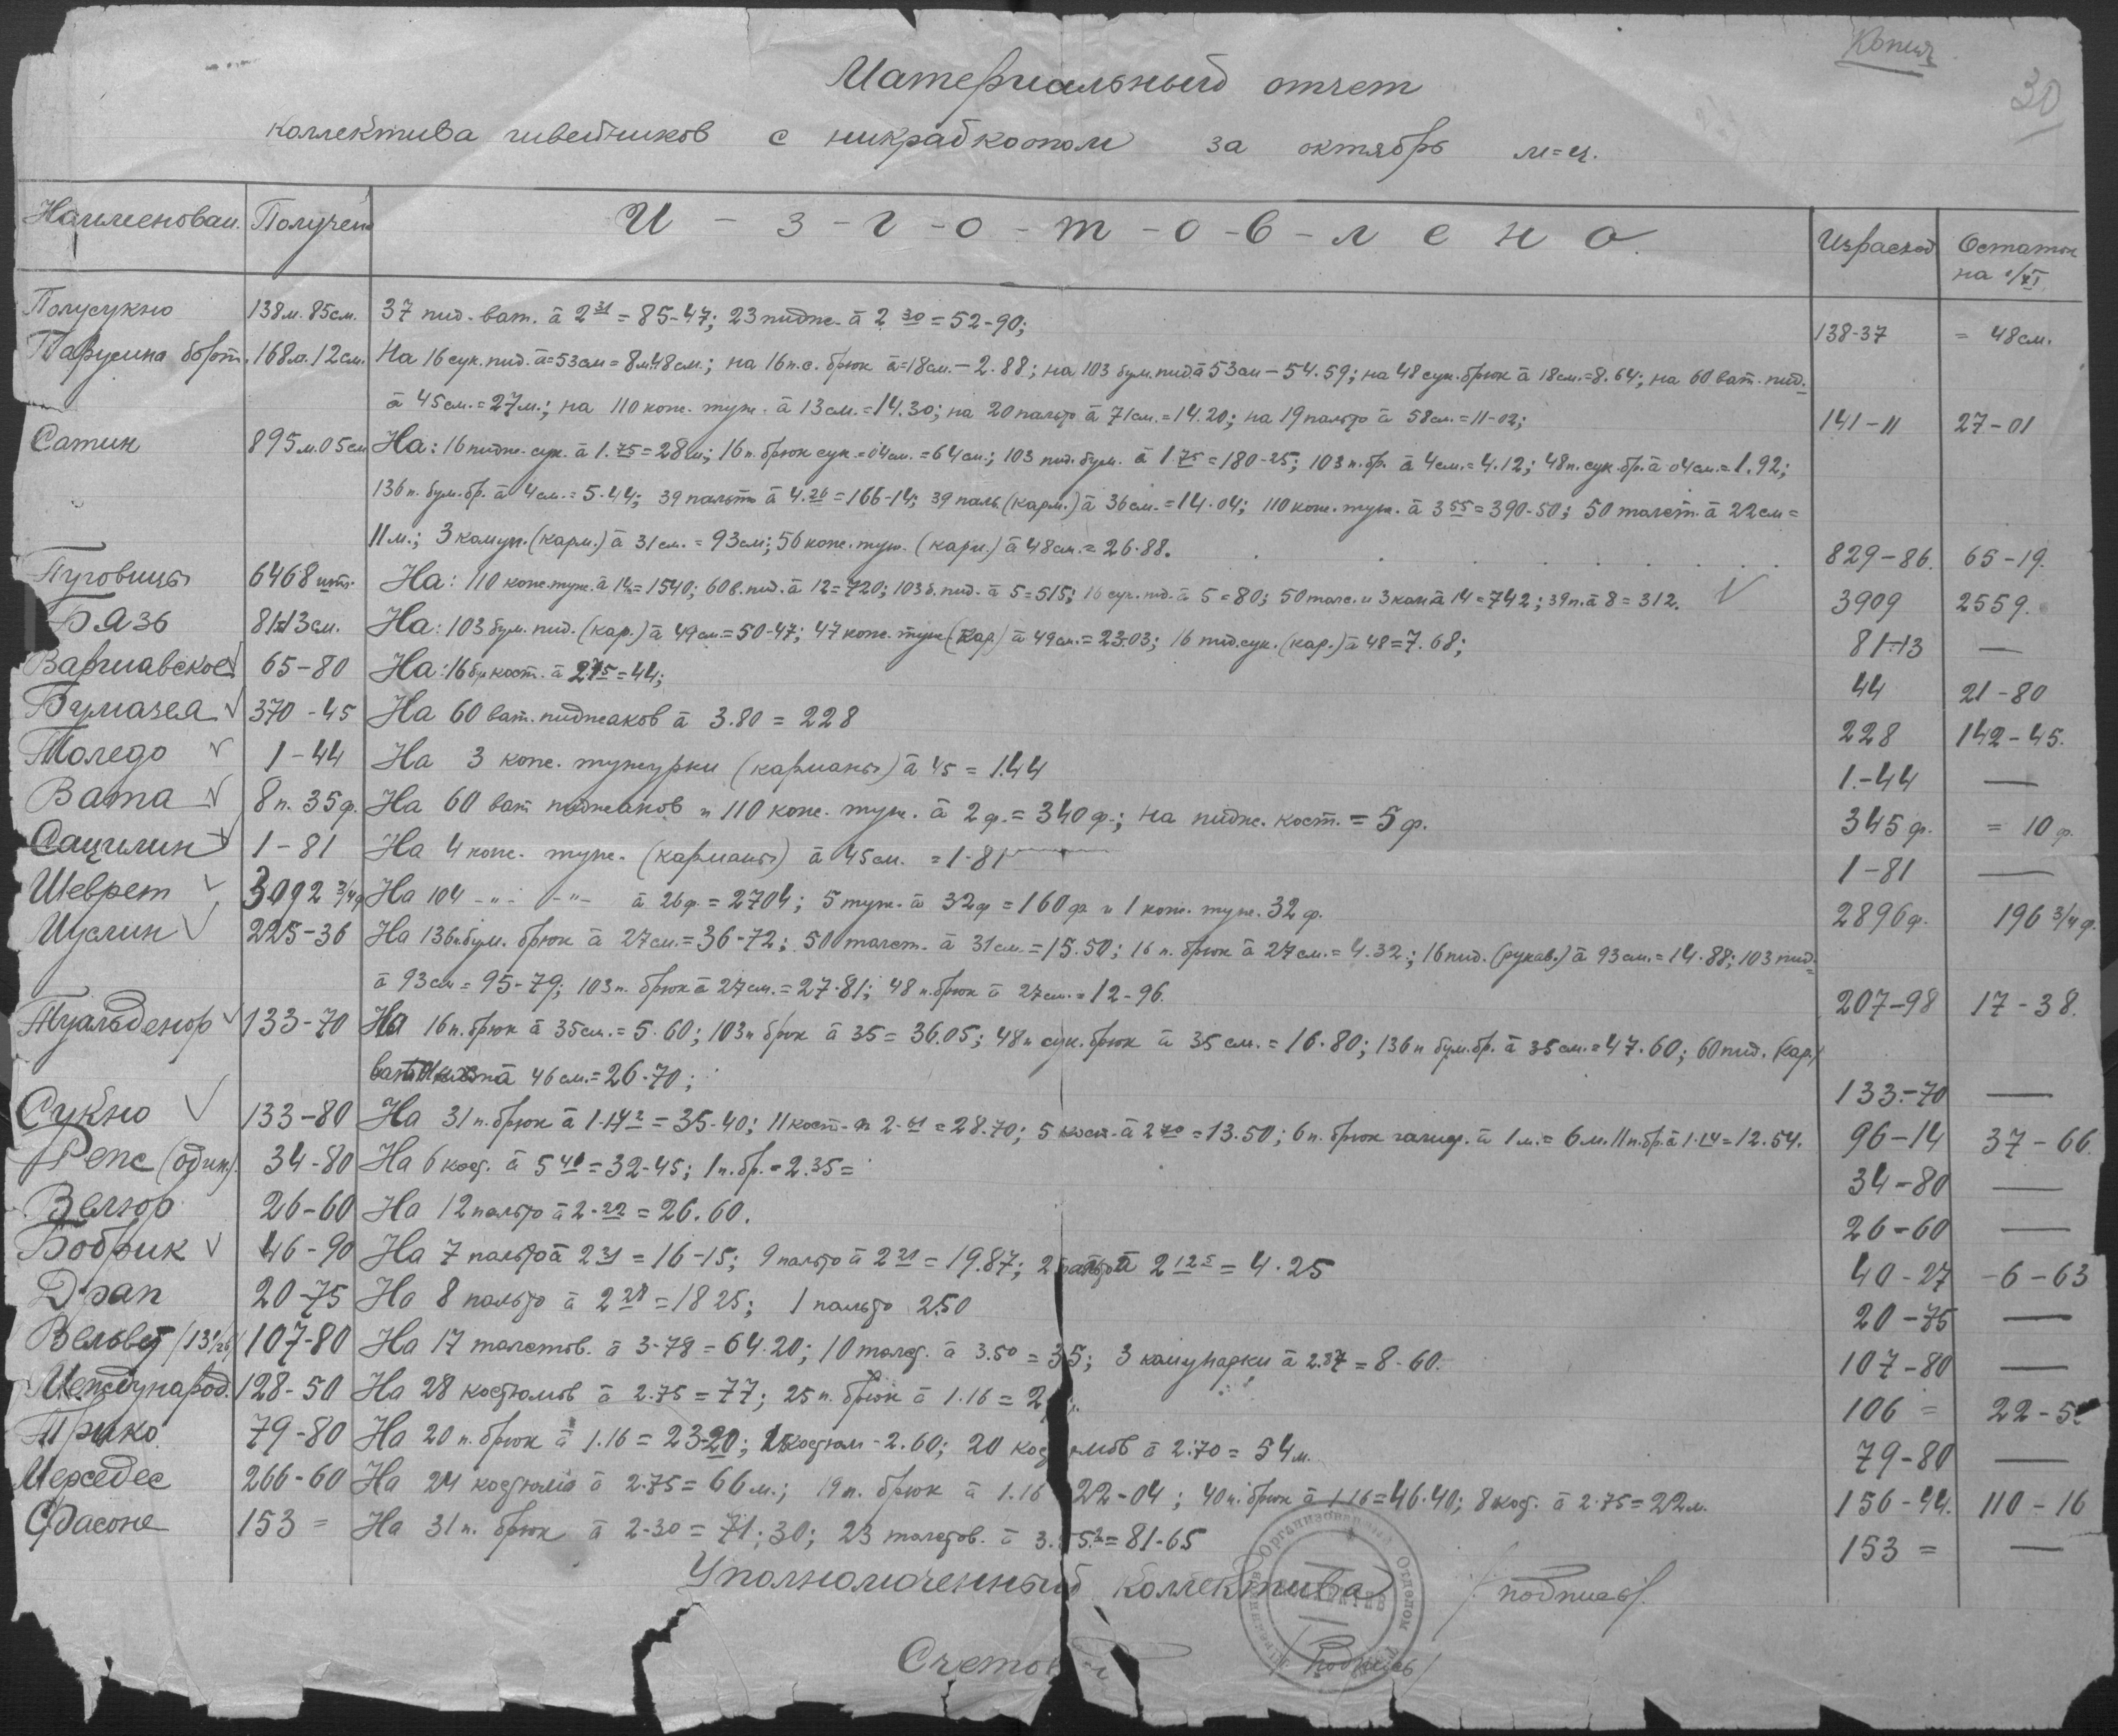 Копия
30
Материальный отчет
коллектива швейников с никрабкоопом за октябрь м=ц.
Наименован. Получен И-з-г-о-т-о-в-л-е-н-о. Израсход Остаток
на 1/XI
Полусукно 138м.85см. 37 пид. ват. à 2 31 = 85-47; 23 пидж. à 2 30 = 52-90; 138-37 = 48см.
Парусина борт. 168м.12см. На 16 сук. пид. à=53см=8м48см; на 16 п.с. брюк à=18см.-2.88; на 103 бум. пид à 53см-54.59; на 48 сук. брюк à 18см.=8.64; на 60 ват. пид.
à 45см.=27м.; на 110 кож. туж. à 13см.=14.30; на 20 пальто à 71см.=14.20; на 19 пальто à 58см.=11-02; 141-11 27-01
Сатин 895м.05см На: 16 пидж. сук. à 1.75=28м; 16 п. брюк сук.=04см.=64см.; 103 пид. бум. à 1.75=180-25; 103 п. бр. à 4см.=4.12; 48п. сук. бр. à 04см.=1.92;
136 п. бум. бр. à 4см.=5.44; 39 пальто à 4.26=166-14; 39 паль. (карм.) à 36см.=14.04; 110 кож. туж. à 3 55=390-50; 50 толст. à 22см=
11м.; 3 комун. (карм.) à 31см.=93см; 56 кож. туж. (карм.) à 48см.=26.88. 829-86. 65-19.
Пуговицы 6468 шт. На: 110 кож. туж. à 14=1540; 60 в. пид. à 12=720; 103 б. пид. à 5=515; 16 сук. пид. à 5=80; 50 толс. и 3 ком à 14=742; 39 п. à 8=312. 3909 2559.
Бязь 81-13см. На: 103 бум. пид. (кар.) à 49см=50-47; 47 кож. туж (кар) à 49см.=23.03; 16 пид. сук. (кар.) à 48=7.68; 81-13 —
Варшавское 65-80 На: 16 бр кост. à 2.75=44; 44 21-80
Бумазея 370-45 На 60 ват. пиджаков à 3.80 = 228 228 142-45.
Толедо 1-44 На 3 кож. тужурки (карманы) à 45 = 1.44 1.-44 —
Вата 8п. 35ф. На 60 ват пиджаков и 110 кож. туж. à 2ф.=340ф.; на пидж. кост. = 5ф. 345ф. = 10ф.
1-81 На 4 кож. туж. (карманы) à 45см. = 1-81 1-81 —
Шеврет 3092 3/4ф На 104 -"- -"- à 26ф.=2704; 5 туж. à 32ф=160ф и 1 кож. туж. 32ф. 2896ф. 196 3/4ф.
Муслин 225-36 На 136п бум. брюк à 27см.=36-72; 50 толст. à 31см.=15.50; 16 п. брюк à 27см.=4.32; 16 пид. (рукав.) à 93см.=14.88; 103 пид.
à 93см=95-79; 103п. брюк à 27см.=27.81; 48 п. брюк à 27см.=12-96. 207-98 17-38.
Туальденор 133-70 На 16 п. брюк à 35см.=5.60; 103п брюк à 35=36.05; 48п сук. брюк à 35см.=16.80; 136п бум. бр. à 35см.=47.60; 60 пид. (кар.)
à 46см.=26-70; 133-70 —
Сукно 133-80 На 31 п. брюк à 1-14 2=35-40; 11 кост. à 2-61=28.70; 5 кост. à 2 70=13.50; 6 п. брюк галиф. à 1м.=6м. 11 п. бр. à 1-14=12.54. 96-14 37-66.
Репс 34-80 На 6 кост. à 5 40=32-45; 1 п. бр.=2.35= 34-80 —
Велюр 26-60 На 12 пальто à 2-22=26.60. 26-60 —
Бобрик 46-90 На 7 пальто à 2 31=16-15; 9 пальто à 2 21=19.87; 2 пальто à 2 12 5=4.25 40-27 -6-63
Драп 20-75 На 8 пальто à 2 28=18 25; 1 пальто 2.50 20-75 —
Вельвет 107-80 На 17 толстов. à 3-78=64.20; 10 толст. à 3.50=35; 3 комунарки à 2.87=8-60. 107-80 —
Междунарoд. 128-50 На 28 костюмов à 2.75=77; 25 п. брюк à 1.16=2 106= 22-5
Трико 79-80 На 20 п. брюк à 1.16=23-20; 1 костюм-2.60; 20 костюмов à 2.70=54м. 79-80 —
Мерседес 266-60 На 24 костюма à 2.75=66м.; 19 п. брюк à 1.16 22-04; 40 п. брюк à 1.16=46.40; 8 кост. à 2.75=22м. 156-44. 110-16
153= На 31 п. брюк à 2-30=71.30; 23 толстов. à 3.55=81-65 153= —
Уполномоченный Коллектива /подпись/.
Счетовод /подпись/